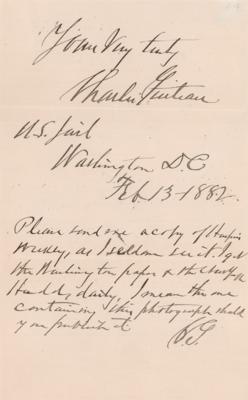 Yours very truly
Charles Guiteau
U.S. Jail
Washington D.C
Feb 13-1882.
Please send me a copy of Harpers
Weekly, as I seldom see it. I get
the Washington papers & the
Herald, daily, I mean the one
containing this photograph should
you publish it
C.G.